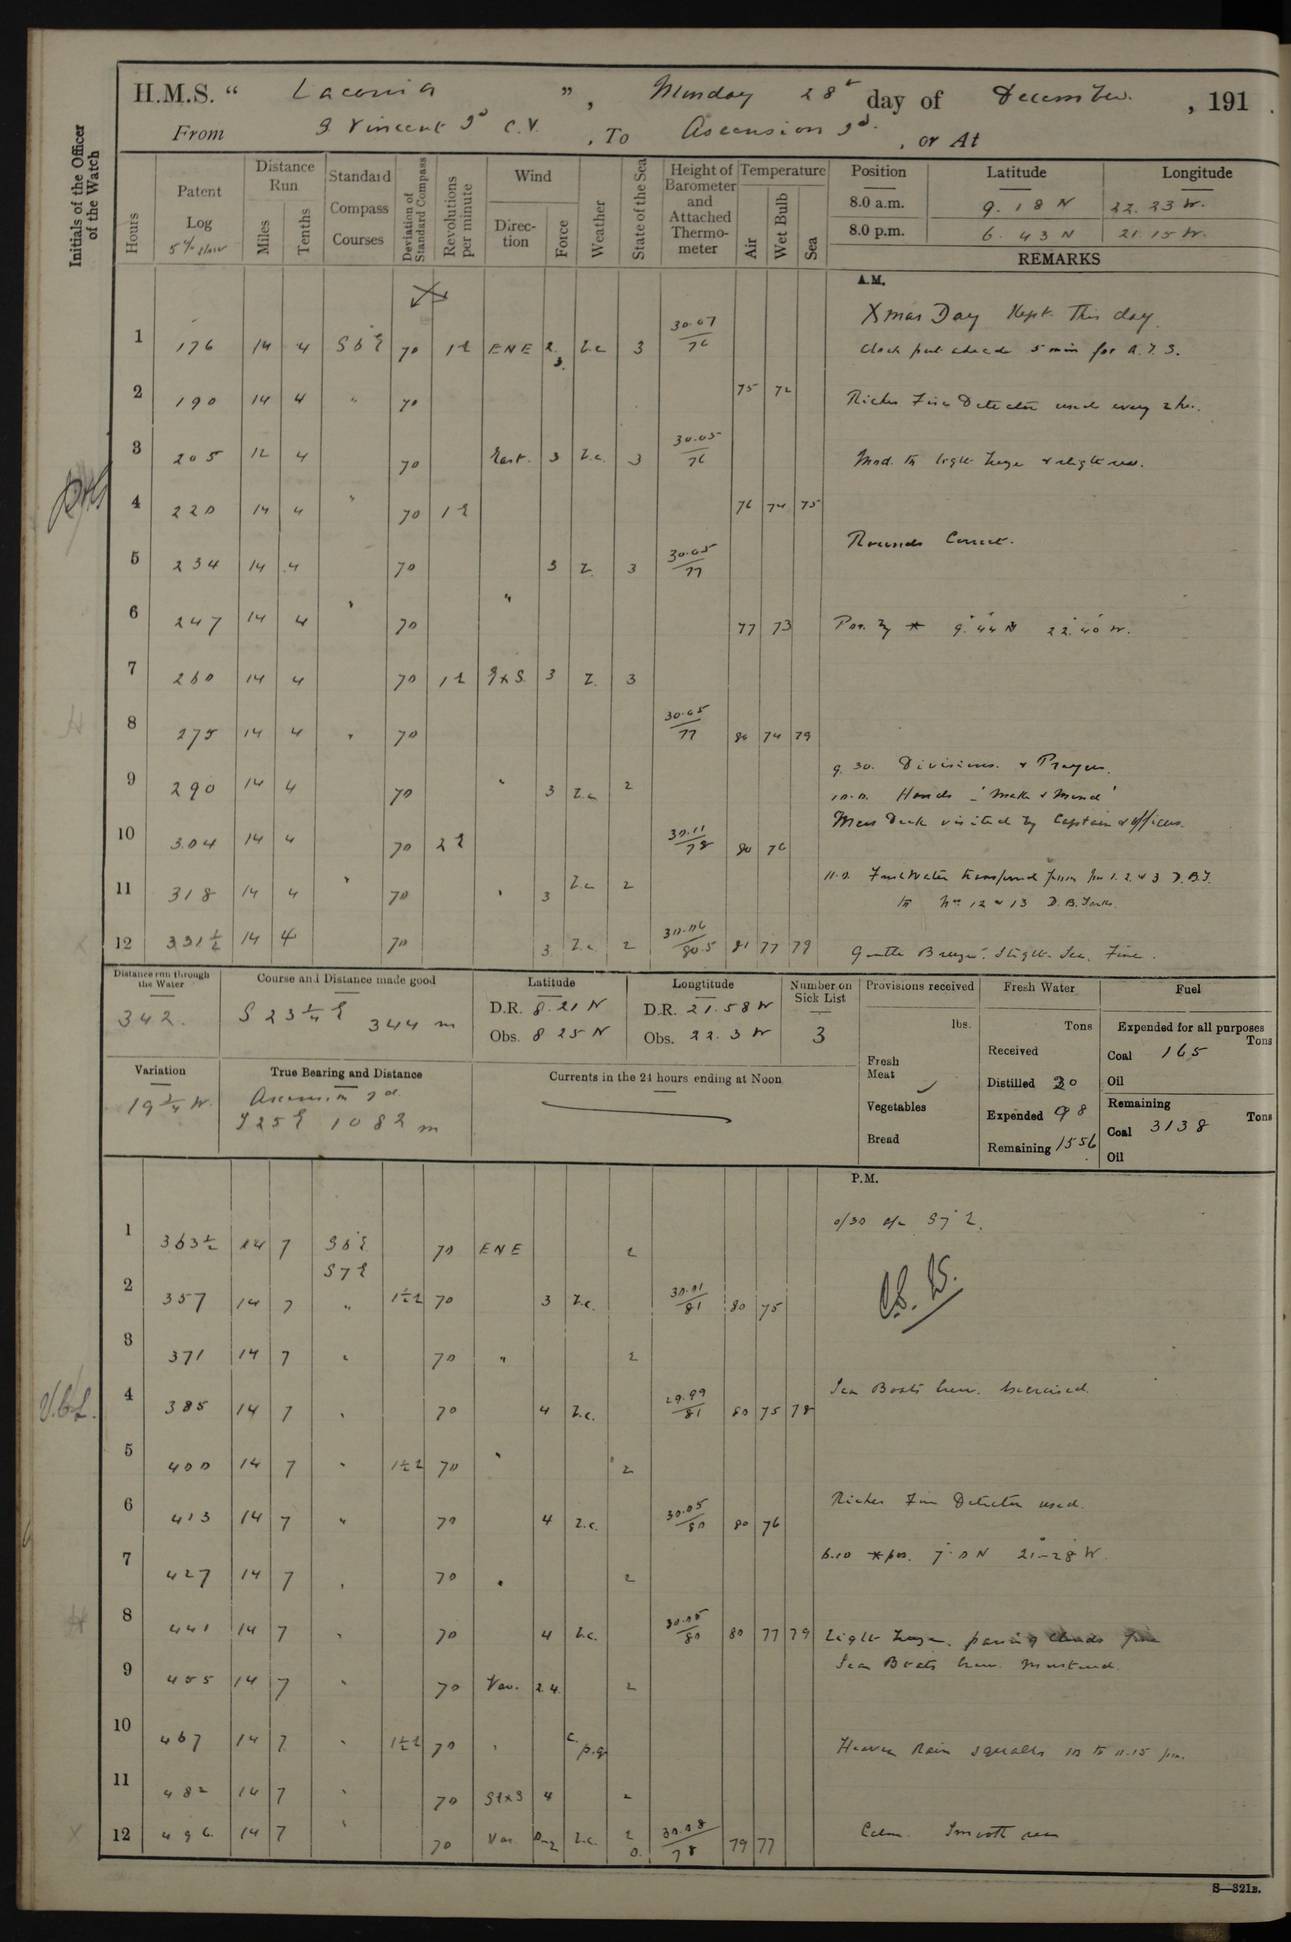 H.M.S. “ Laconia ”, Monday 28th day of December. , 191 .
From S Vincent Id C.V. , To Ascension Id. , or At
Initials of the Officer of the Watch
Hours
Patent Log 5% slow
Distance Run Miles Tenths
Standard Compass Courses
Deviation of Standard Compass
Revolutions per minute
Wind Direction Force
Weather
State of the Sea
Height of Barometer and Attached Thermometer
Temperature Air Wet Bulb Sea
Position Latitude Longitude
8.0 a.m. 9.18 N 22.23 W.
8.0 p.m. 6.43 N 21.15 W.
REMARKS
A.M.
Xmas Day Kept This day.
1 176 14 4 S 6 E 70 ENE 2.3. 3 30.07/76
Clock put ahead 5 min for A.T.S.
2 190 14 4 " 70 75 72
Riches Fire Detector used every 2 hrs.
3 205 4 70 East. 3 3 30.05/76
Mod. to light breeze & slight sea.
4 220 14 4 " 70 76 74 75
Rounds Correct.
5 234 14 4 70 3 3 30.05/77
6 247 14 4 " 70 " 77 73
Pos. by * 9° 44' N 22° 40' W.
7 260 14 4 70 ExS. 3 3
8 275 14 4 " 70 30.05/77 80 74 79
9. 30. Divisions & Prayers.
9 290 14 4 70 " 3 2
10.0. Hands - 'Make & Mend'
Mess Deck visited by Captain & Officers.
10 304 14 4 70 30.11/78 80 76
11.0. Fresh Water transferred from Nos 1. 2. & 3 D.B.T.
11 318 14 4 " 70 " 3 2
to Nos 12 & 13 D.B. Tanks.
12 331½ 14 4 70 3 2 30.06/80.5 81 77 79
Gentle Breeze. Slight Sea. Fine.
Distance run through the Water 342.
Course and Distance made good S 23¼ E 344 m
Latitude D.R. 8.21 N Obs. 8 25 N
Longtitude D.R. 21.58 W Obs. 22. 3 W
Number on Sick List 3
Provisions received lbs. Fresh Meat Vegetables Bread
Fresh Water Tons Received Distilled 30 Expended 98 Remaining 1556
Fuel Expended for all purposes Tons Coal 165 Oil
Remaining Tons Coal 3138 Oil
Variation 19¾ W.
True Bearing and Distance Ascension Id. S 25 E 1082 m
Currents in the 24 hours ending at Noon
P.M.
0/30 a/c S 7° E.
1 14 7 S 6 E 70 ENE 2
S 7 E
2 357 14 7 " 1½ E 70 3 30.01/81 80 75
3 371 14 7 " 70 " 2
4 385 14 7 " 70 4 29.99/81 80 75 78
Sea Boats Crew. Exercised.
5 400 14 7 " 1½ E 70 " 2
6 413 14 7 " 70 4 30.05/80 80 76
Riches Fire Detector used.
7 427 14 7 " 70 " 2
6.10 * pos. 7° 0 N 21-28 W.
8 441 14 7 " 70 4 30.05/80 80 77 79
Light breeze. passing clouds fine
Sea Boats Crew. Mustered.
9 455 14 7 " 70 Var. 2.4. 2
10 467 14 7 " 1½ E 70 " c. p.q.
Heavy Rain squalls 10 to 11.15 pm.
11 482 14 7 " 70 SExS 4
12 496 14 7 " 70 Var 2 0. 30.08/78 79 77
Calm. Smooth sea
S—321B.